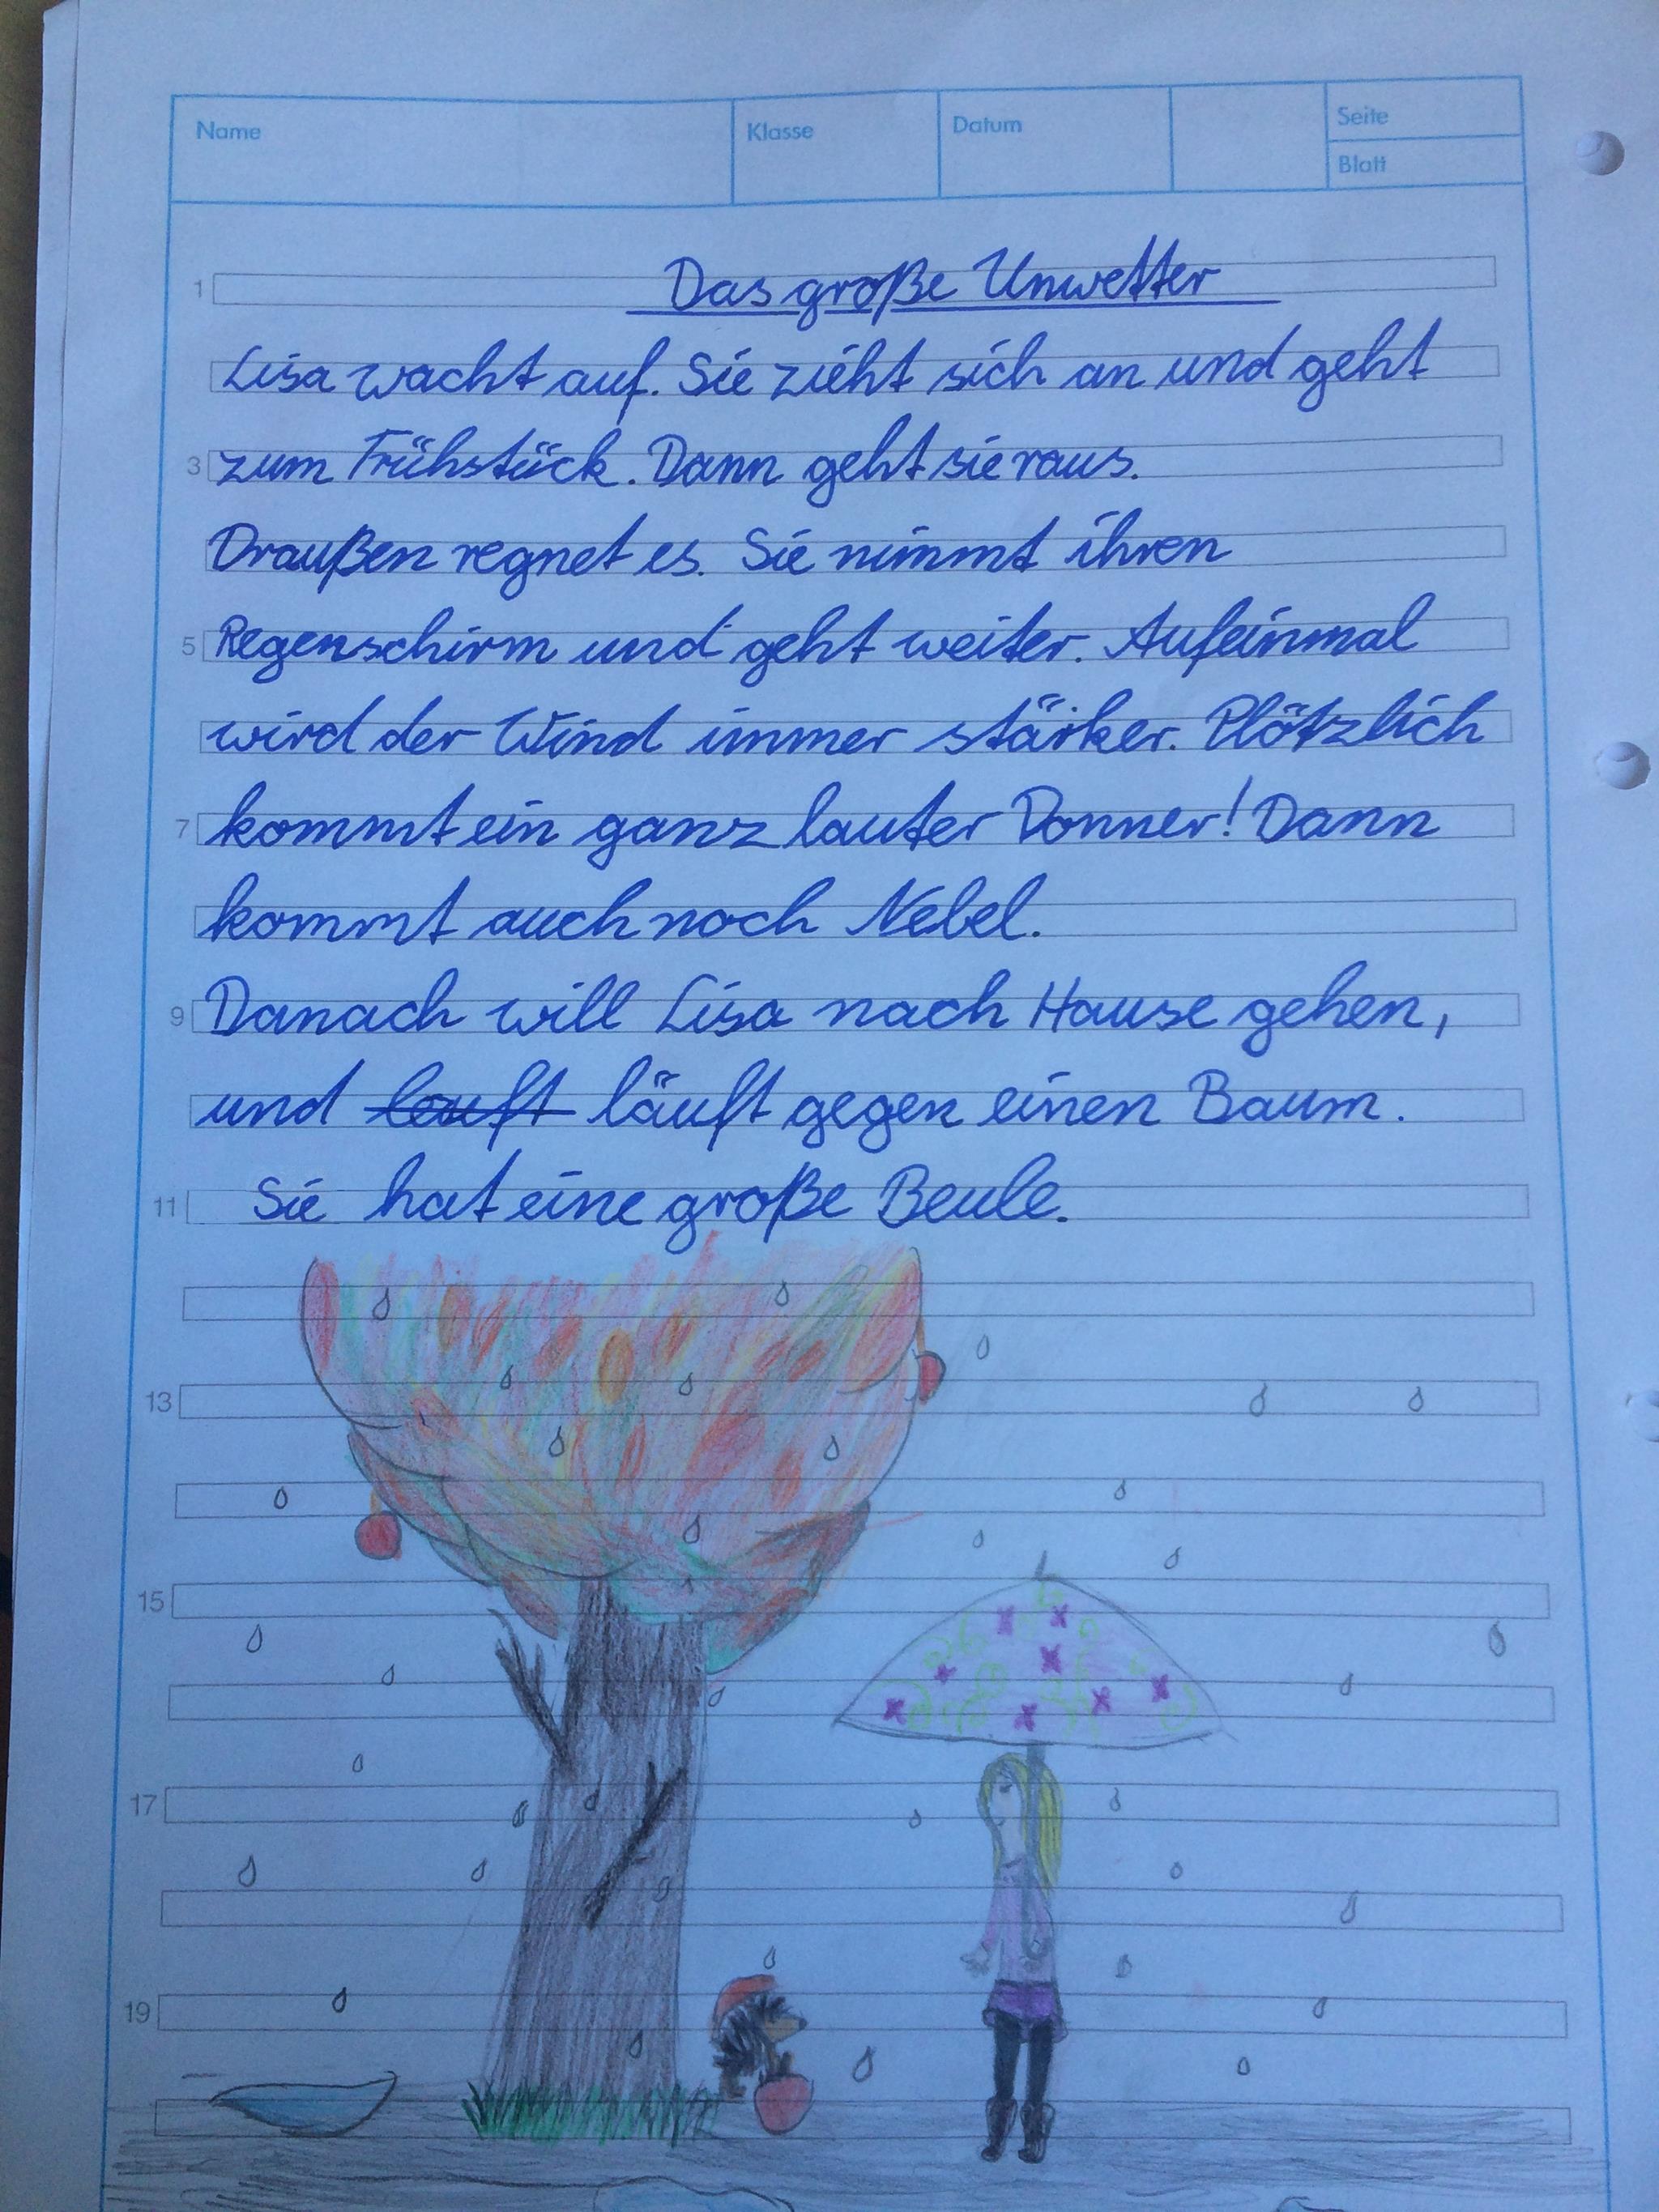 Name Klasse Datum Seite
Blatt
1 Das große Unwetter
Lisa wacht auf. Sie zieht sich an und geht
3 zum Frühstück. Dann geht sie raus.
Draußen regnet es. Sie nimmt ihren
5 Regenschirm und geht weiter. Aufeinmal
wird der Wind immer stärker. Plötzlich
7 kommt ein ganz lauter Donner! Dann
kommt auch noch Nebel.
9 Danach will Lisa nach Hause gehen,
und lauft läuft gegen einen Baum.
11 Sie hat eine große Beule.
13
15
17
19